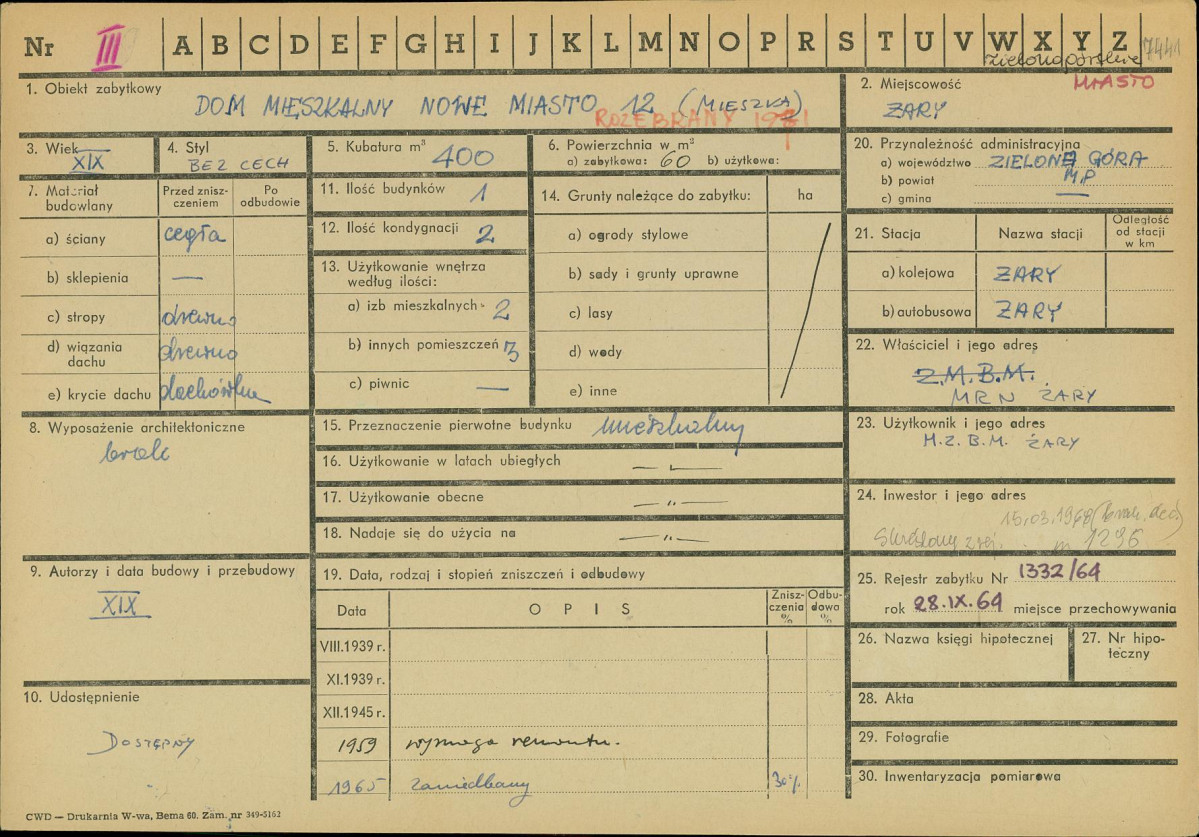 Nr III A B C D E F G H I J K L M N O P R S T U V W X Y Z 7441
zielonogórskie
1. Obiekt zabytkowy
DOM MIESZKALNY NOWE MIASTO 12 (MIESZKA)
ROZEBRANY 1971
2. Miejscowość MIASTO
ŻARY
3. Wiek
XIX
4. Styl
BEZ CECH
5. Kubatura m³ 400
6. Powierzchnia w m²
a) zabytkowa: 60 b) użytkowa:
20. Przynależność administracyjna
a) województwo ZIELONA GÓRA
b) powiat M.P
c) gmina —
7. Materiał budowlany
Przed zniszczeniem
Po odbudowie
a) ściany cegła
b) sklepienia —
c) stropy drewno
d) wiązania dachu drewno
e) krycie dachu dachówka
11. Ilość budynków 1
12. Ilość kondygnacji 2
13. Użytkowanie wnętrza
według ilości:
a) izb mieszkalnych 2
b) innych pomieszczeń 3
c) piwnic —
14. Grunty należące do zabytku: ha
a) ogrody stylowe
b) sady i grunty uprawne
c) lasy
d) wody
e) inne
21. Stacja Nazwa stacji Odległość od stacji w km
a) kolejowa ŻARY
b) autobusowa ŻARY
22. Właściciel i jego adres
Z.M.B.M.
MRN ŻARY
8. Wyposażenie architektoniczne
brak
15. Przeznaczenie pierwotne budynku mieszkalny
16. Użytkowanie w latach ubiegłych — " —
17. Użytkowanie obecne — " —
18. Nadaje się do użycia na — " —
23. Użytkownik i jego adres
M.Z.B.M. ŻARY
24. Inwestor i jego adres
15.03.1968
Skreślony z rej. 1296
9. Autorzy i data budowy i przebudowy
XIX
19. Data, rodzaj i stopień zniszczeń i odbudowy
Data OPIS Zniszczenia % Odbudowa %
VIII.1939 r.
XI.1939 r.
XII.1945 r.
1959 wymaga remontu.
1965 zaniedbany 30%
25. Rejestr zabytku Nr 1332/64
rok 28.IX.64 miejsce przechowywania
26. Nazwa księgi hipotecznej
27. Nr hipoteczny
10. Udostępnienie
DOSTĘPNY
28. Akta
29. Fotografie
30. Inwentaryzacja pomiarowa
CWD — Drukarnia W-wa, Bema 60. Zam. nr 349-5162